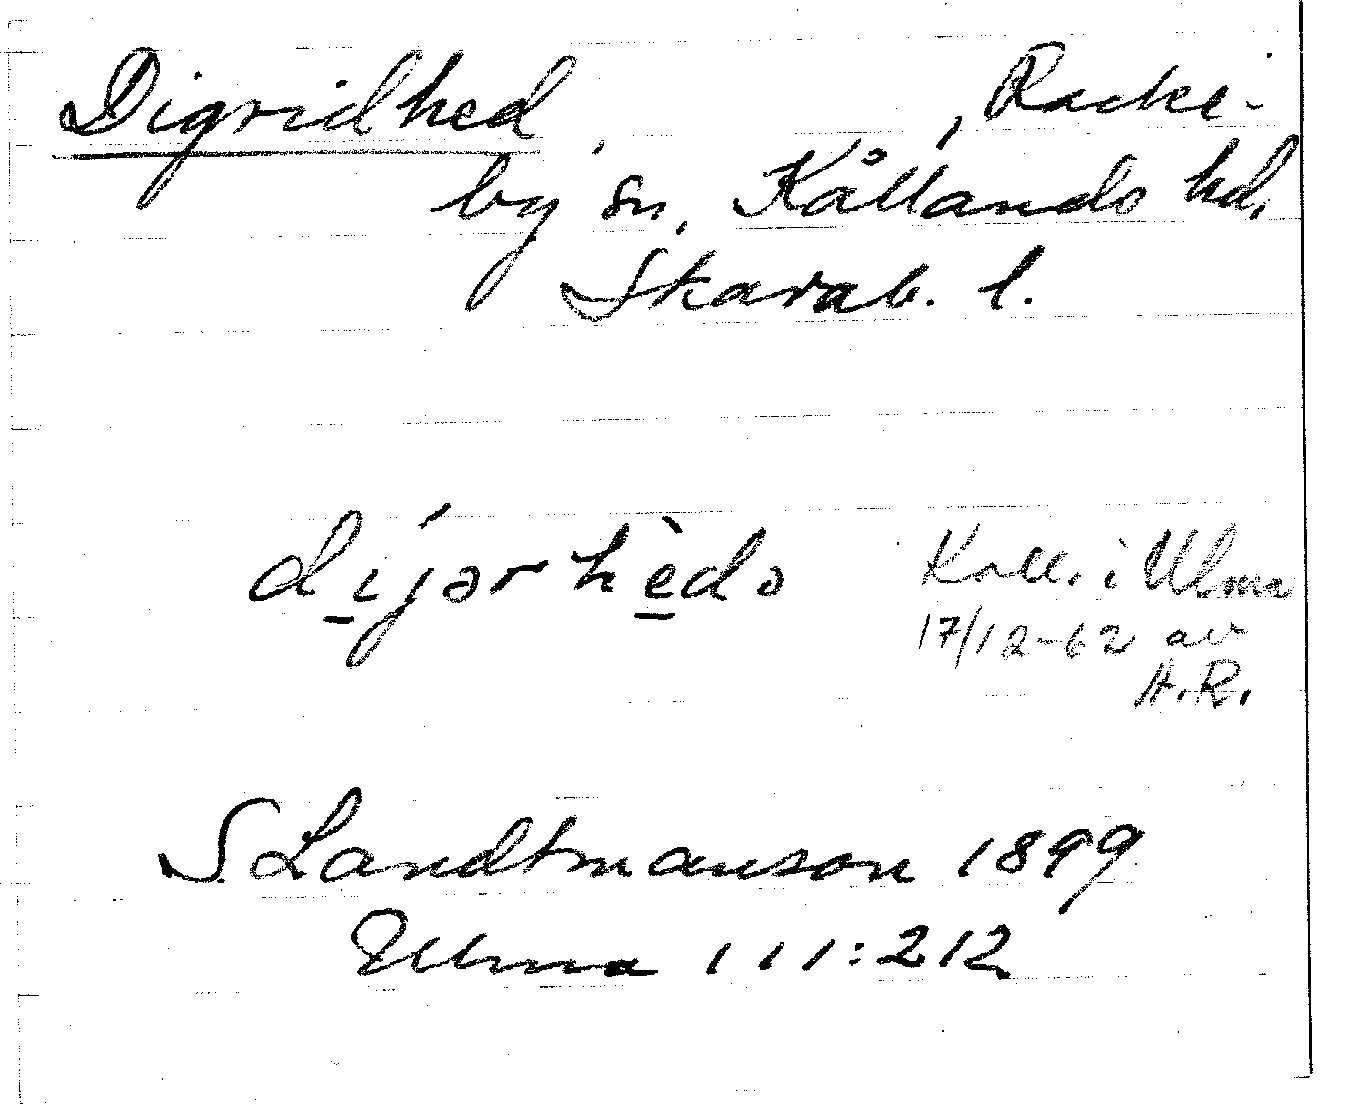 Digridhed, , Racke-
by sn, Kållands hd,
Skarab. l.
dı̠jər hè̠ds
Koll. i Ulma
17/12-62 av
A.R.
S Landtmanson 1899
Ulma 111:212